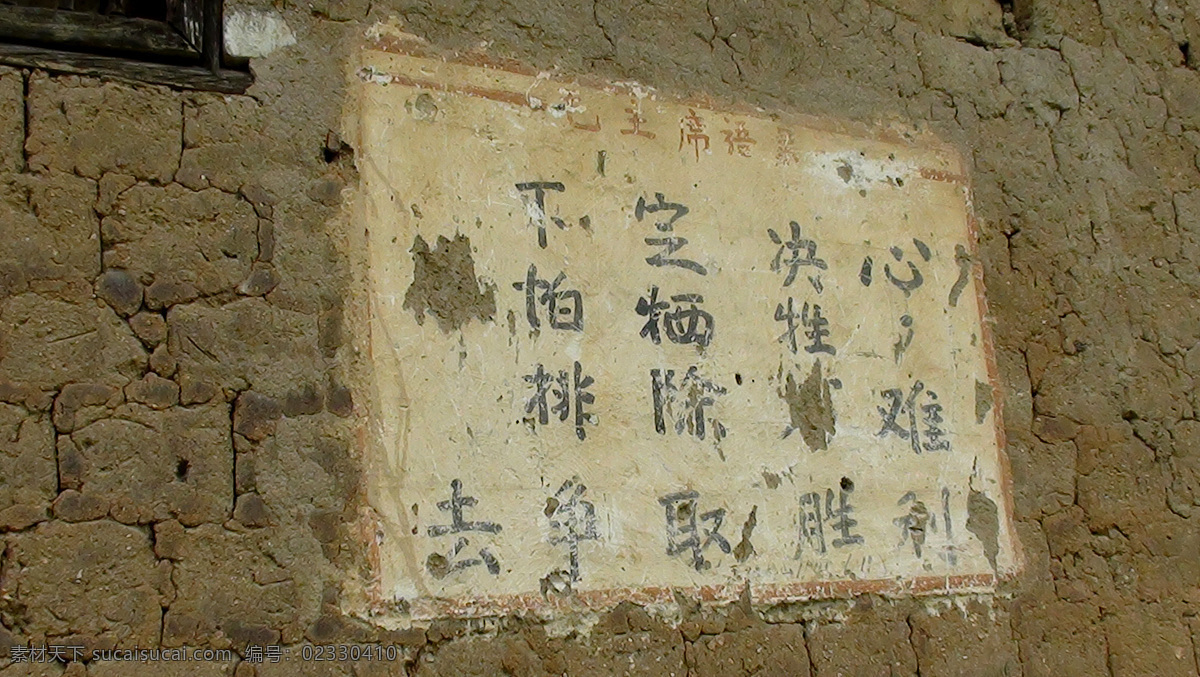 毛主席语录
下定决心，
怕牺牲，
排除难
去争取胜利
素材天下 sucaisucai.com 编号：02330410